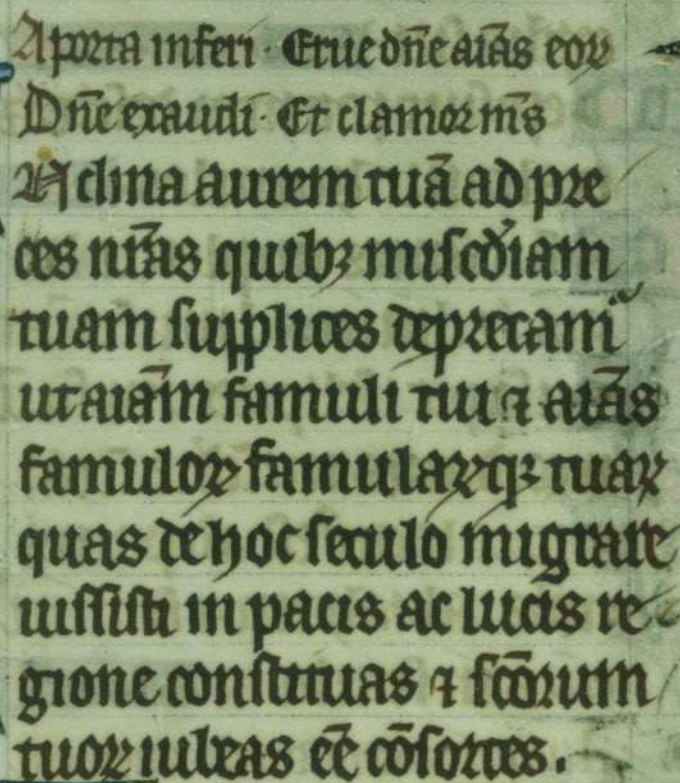 A porta inferi · Erue dn̄e aīas eoꝝ
Dn̄e exaudi · Et clamor m̄s
Inclina aurem tuā ad pre
ces nr̄as quibꝫ miſcd̓iam
tuam ſupplices deprecamᷣ
ut aīam famuli tui ⁊ aīas
famuloꝝ famulaꝝqꝫ tuaꝝ
quas de hoc ſeculo migrare
iuſſiſti in pacis ac lucis re
gione conſtituas ⁊ ſc̄orum
tuoꝝ iubeas eē cōſortes.